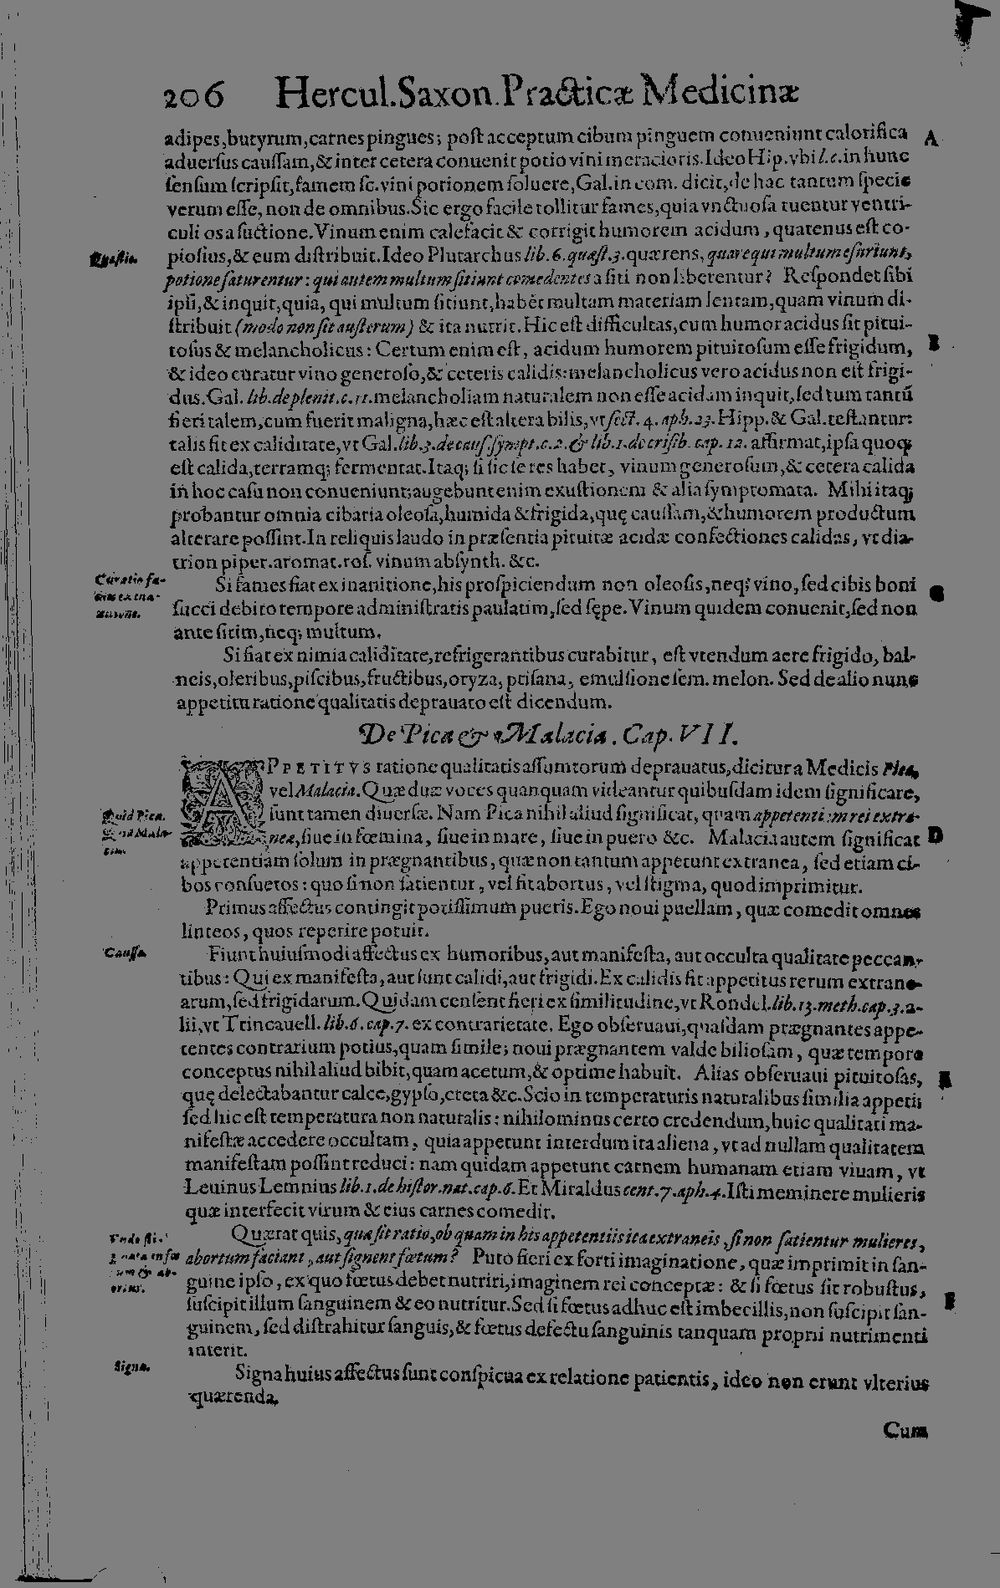 206 Hercul.Saxon.Practicæ Medicinæ
adipes,butyrum,carnes pingues; post acceptum cibum pinguem conueniunt calorifica A
aduersus caussam,& inter cetera conuenit potio vini meracioris.Ideo Hip.vbi l.c.in hunc
sensum scripsit,famem sc.vini potionem soluere,Gal.in com. dicit,de hac tantum specie
verum esse, non de omnibus.Sic ergo facile tollitur fames,quia vnctuosa tuentur ventri-
culi osa suctione.Vinum enim calefacit & corrigit humorem acidum, quatenus est co-
Quæstio. piosius,& eum distribuit.Ideo Plutarchus lib.6.quæst.3.quærens,quare qui multum esuriunt,
potione saturentur: qui autem multum sitiunt comedentes a siti non liberentur? Respondet sibi
ipsi,& inquit,quia, qui multum sitiunt,habēt multam materiam lentam,quam vinum di-
stribuit (modo non sit austerum) & ita nutrit. Hic est difficultas,cum humor acidus sit pitui-
tosus & melancholicus: Certum enim est, acidum humorem pituitosum esse frigidum, B
& ideo curatur vino generoso,& ceteris calidis:melancholicus vero acidus non est frigi-
dus.Gal. lib.de plenit.c.11.melancholiam naturalem non esse acidam inquit,sed tum tantū
fieri talem,cum fuerit maligna,hæc est altera bilis,vt sect. 4. aph.23. Hipp.& Gal.testantur:
talis fit ex caliditate,vt Gal.lib.3.de caus.sympt.c.2.& lib.1.de crisib. cap. 12. affirmat,ipsa quoq;
est calida,terramq; fermentat.Itaq; si sic se res habet, vinum generosum,& cetera calida
in hoc casu non conueniunt:augebunt enim exustionem & alia symptomata. Mihi itaq;
probantur omnia cibaria oleosa,humida & frigida,quę caussam,& humorem productum
alterare possint.In reliquis laudo in præsentia pituitæ acidæ confectiones calidas, vt dia-
trion piper.aromat.ros. vinum absynth. &c.
Curatio fa-
mis ex ina-
nitione.
Si fames fiat ex inanitione,his prospiciendum non oleosis,neq; vino, sed cibis boni C
succi debito tempore administratis paulatim,sed sępe.Vinum quidem conuenit,sed non
ante sitim,neq; multum.
Si fiat ex nimia caliditate,refrigerantibus curabitur, est vtendum aere frigido, bal-
neis,oleribus,piscibus,fructibus,oryza, ptisana, emulsione sem. melon. Sed de alio nunc
appetitu ratione qualitatis deprauato est dicendum.
De Pica & Malacia. Cap. VII.
APPETITVS ratione qualitatis assumtorum deprauatus,dicitur a Medicis Pica,
vel Malacia.Quæ duæ voces quanquam videantur quibusdam idem significare,
Quid Pica.
Quid Mala-
cia.
sunt tamen diuersæ. Nam Pica nihil aliud significat, quam appetentiam rei extra-
nea,siue in fœmina, siue in mare, siue in puero &c. Malacia autem significat D
appetentiam solum in prægnantibus, quæ non tantum appetunt extranea, sed etiam ci-
bos consuetos: quo si non satientur, vel fit abortus, vel stigma, quod imprimitur.
Primus affectus contingit potissimum pueris. Ego noui puellam, quæ comedit omnes
linteos, quos reperire potuit.
Caussa. Fiunt huiusmodi affectus ex humoribus, aut manifesta, aut occulta qualitate peccan-
tibus: Qui ex manifesta, aut sunt calidi,aut frigidi.Ex calidis fit appetitus rerum extrane-
arum,sed frigidarum.Quidam censent fieri ex similitudine,vt Rondel.lib.13.meth.cap.3.a-
lii,vt Trincauell.lib.6.cap.7. ex contrarietate. Ego obseruaui,quasdam prægnantes appe-
tentes contrarium potius,quam simile; noui prægnantem valde biliosam, quæ tempore
conceptus nihil aliud bibit,quam acetum,& optime habuit. Alias obseruaui pituitosas, E
quę delectabantur calce,gypso,creta &c. Scio in temperaturis naturalibus similia appeti;
sed hic est temperatura non naturalis: nihilominus certo credendum,huic qualitati ma-
nifestæ accedere occultam, quia appetunt interdum ita aliena, vt ad nullam qualitatem
manifestam possint reduci: nam quidam appetunt carnem humanam etiam viuam, vt
Leuinus Lemnius lib.1.de histor.nat.cap.6. Et Miraldus cent.7.aph.4.Isti meminere mulieris
quæ interfecit virum & eius carnes comedit.
Quærat quis, quæ sit ratio,ob quam in his appetentiis ita extraneis, si non satientur mulieres,
abortum faciant, aut signent fœtum? Puto fieri ex forti imaginatione, quæ imprimit in san-
guine ipso, ex quo fœtus debet nutriri,imaginem rei conceptæ: & si fœtus sit robustus,
suscipit illum sanguinem & eo nutritur.Sed si fœtus adhuc est imbecillis,non suscipit san- F
guinem, sed distrahitur sanguis,& fœtus defectu sanguinis tanquam proprii nutrimenti
interit.
Signa. Signa huius affectus sunt conspicua ex relatione patientis, ideo non erunt vlterius
quærenda.
Cum